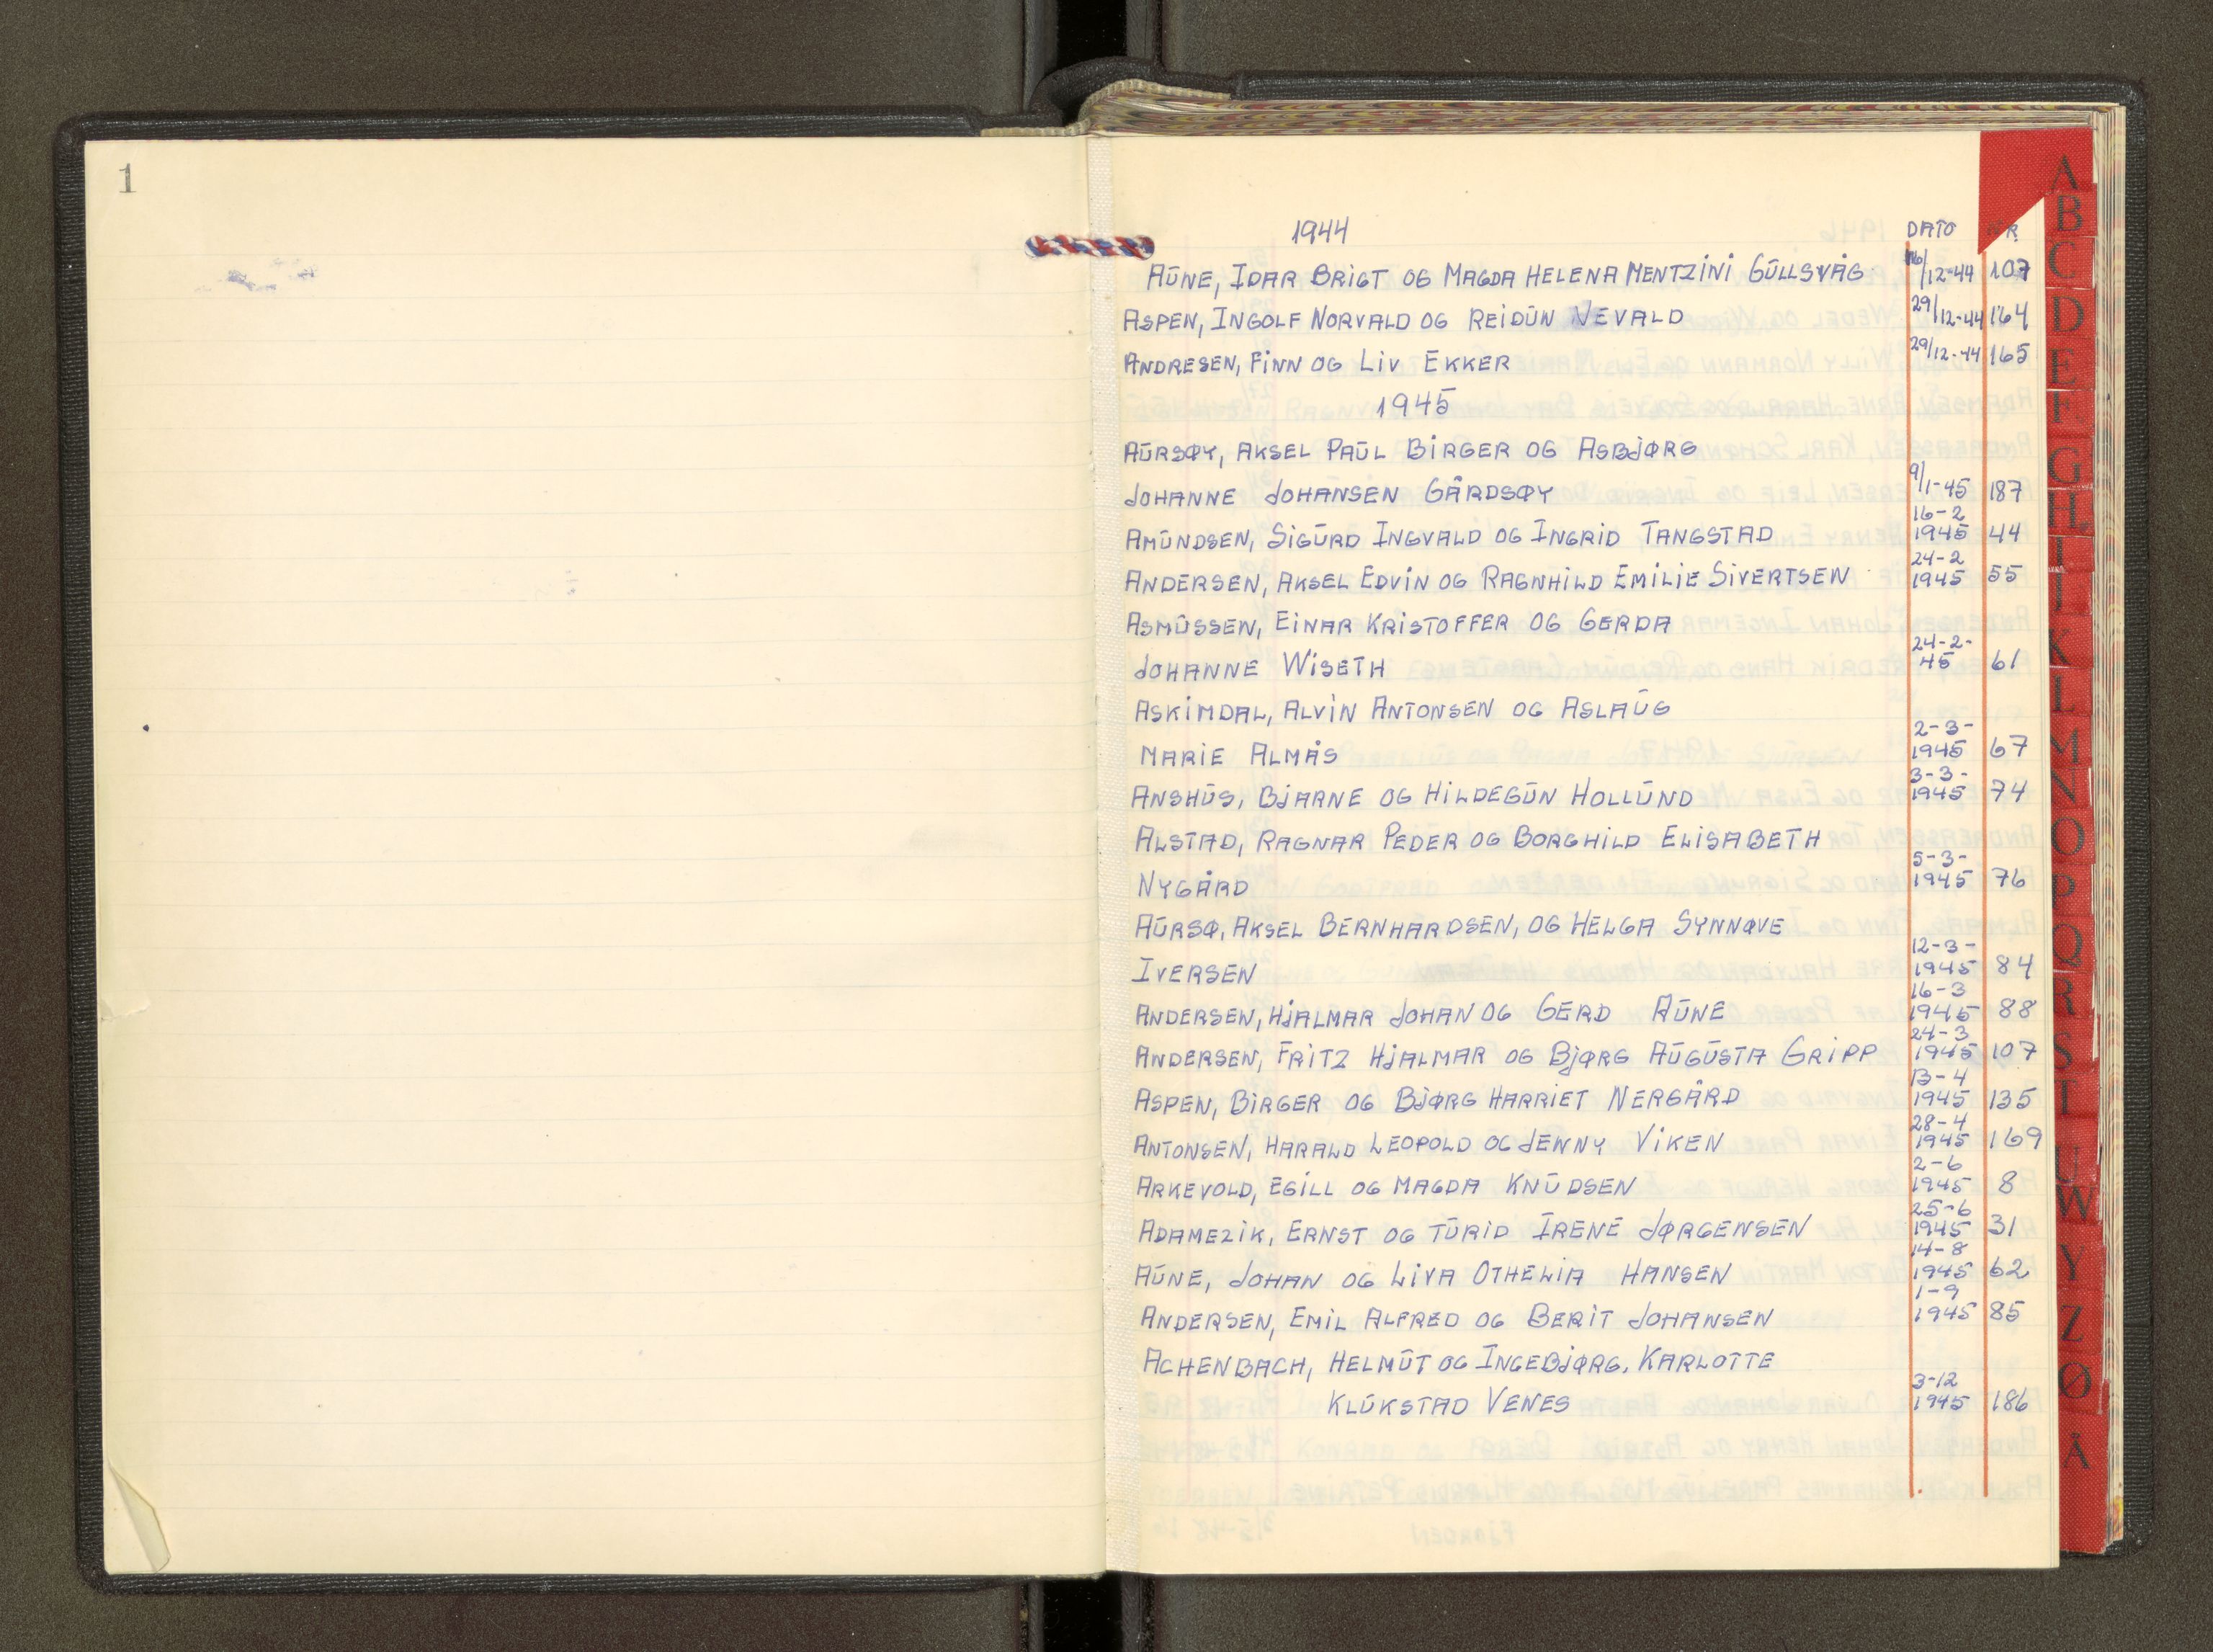 1
1944 DATO
AUNE, IDAR BRIGT OG MAGDA HELENA MENTZINI GULLSVÅG 16/12-44 107
ASPEN, INGOLF NORVALD OG REIDUN VEVALD 29/12-44 164
ANDRESEN, FINN OG LIV EKKER 29/12-44 165
1945
AURSØY, AKSEL PAUL BIRGER OG ASBJØRG
JOHANNE JOHANSEN GÅRDSØY 9/1-45 187
16-2
AMUNDSEN, SIGURD INGVALD OG INGRID TANGSTAD 1945 44
24-2
ANDERSEN, AKSEL EDVIN OG RAGNHILD EMILIE SIVERTSEN 1945 55
ASMUSSEN, EINAR KRISTOFFER OG GERDA
24-2-
JOHANNE WISETH 45 61
ASKIMDAL, ALVIN ANTONSEN OG ASLAUG
2-3-
MARIE ALMÅS 1945 67
3-3-
ANSHUS, BJARNE OG HILDEGUN HOLLUND 1945 74
ALSTAD, RAGNAR PEDER OG BORGHILD ELISABETH
5-3-
NYGÅRD 1945 76
AURSØ, AKSEL BERNHARDSEN, OG HELGA SYNNØVE
12-3-
IVERSEN 1945 84
16-3
ANDERSEN, HJALMAR JOHAN OG GERD AUNE 1945 88
24-3
ANDERSEN, FRITZ HJALMAR OG BJØRG AUGUSTA GRIPP 1945 107
13-4
ASPEN, BIRGER OG BJØRG HARRIET NERGÅRD 1945 135
28-4
ANTONSEN, HARALD LEOPOLD OG JENNY VIKEN 1945 169
2-6
ARKEVOLD, EGILL OG MAGDA KNUDSEN 1945 8
25-6
ADAMEZIK, ERNST OG TURID IRENE JØRGENSEN 1945 31
14-8
AUNE, JOHAN OG LIVA OTHELIA HANSEN 1945 62
1-9
ANDERSEN, EMIL ALFRED OG BERIT JOHANSEN 1945 85
ACHENBACH, HELMUT OG INGEBJØRG, KARLOTTE
3-12
KLUKSTAD VENES 1945 186
A
B
C
D
E
F
G
H
I
J
K
L
M
N
O
P
Q
R
S
T
U
W
Y
Z
Ø
Å